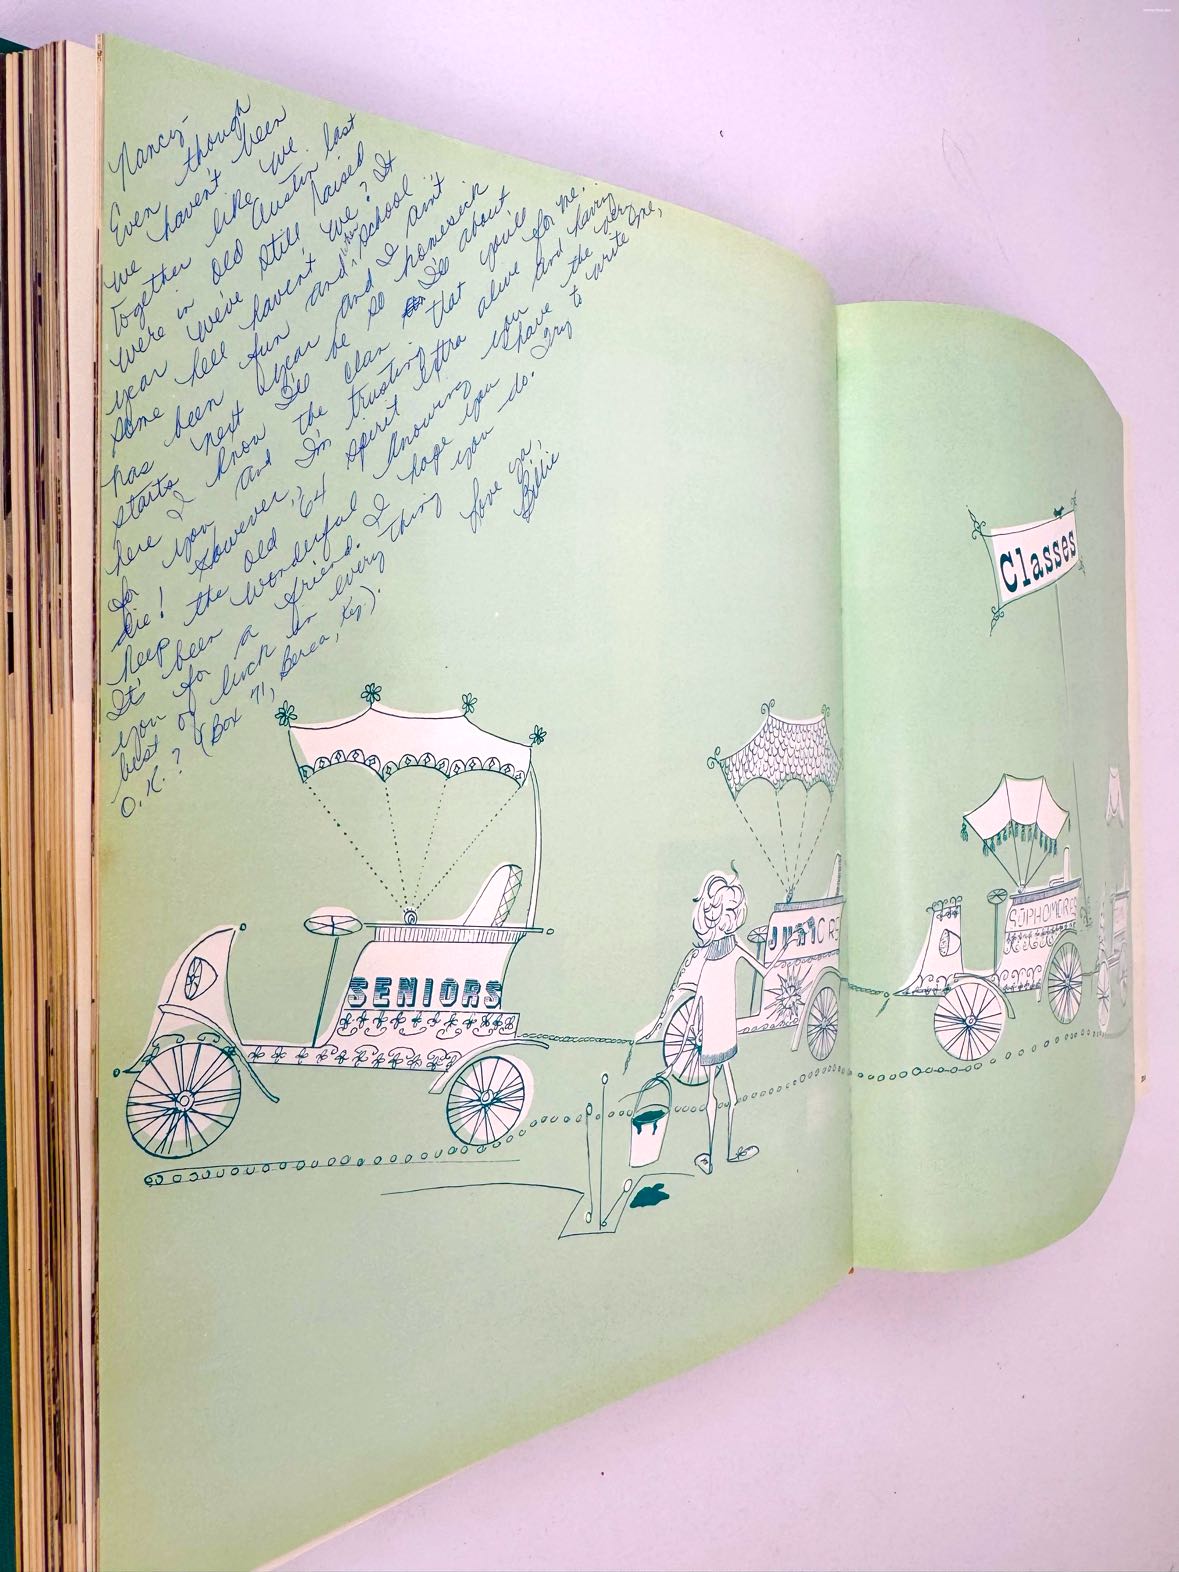 Nancy-
Even though
we haven't been
together like we
were in old Austin last
year we've still raised
some hell haven't we? It
has been fun and when school
starts next year and I ain't
here I know I'll be so homesick
for you and the clan I'll about
die! However, I'm trusting that you'll
keep the old '64 spirit extra alive for me.
It's been wonderful knowing you and having
you for a friend. I hope you have the very
best of luck in every thing you do. Try to write me,
O.K.? (Box 71, Berea, Ky.).
Love ya,
Billie
Classes
SENIORS
JUNIORS
SOPHOMORES